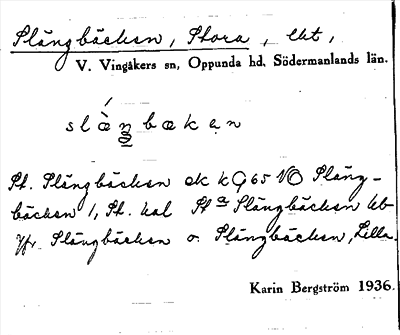 Slängbäcken, Stora, lht,
V. Vingåkers sn, Oppunda hd, Södermanlands län.
slæŋbæken
St. Slängbäcken ek kç 65 NO Släng-
bäcken 1, St. hal Sta Slängbäcken kb
Jfr Slängbäcken o. Slängbäcken, Lilla.
Karin Bergström 1936.